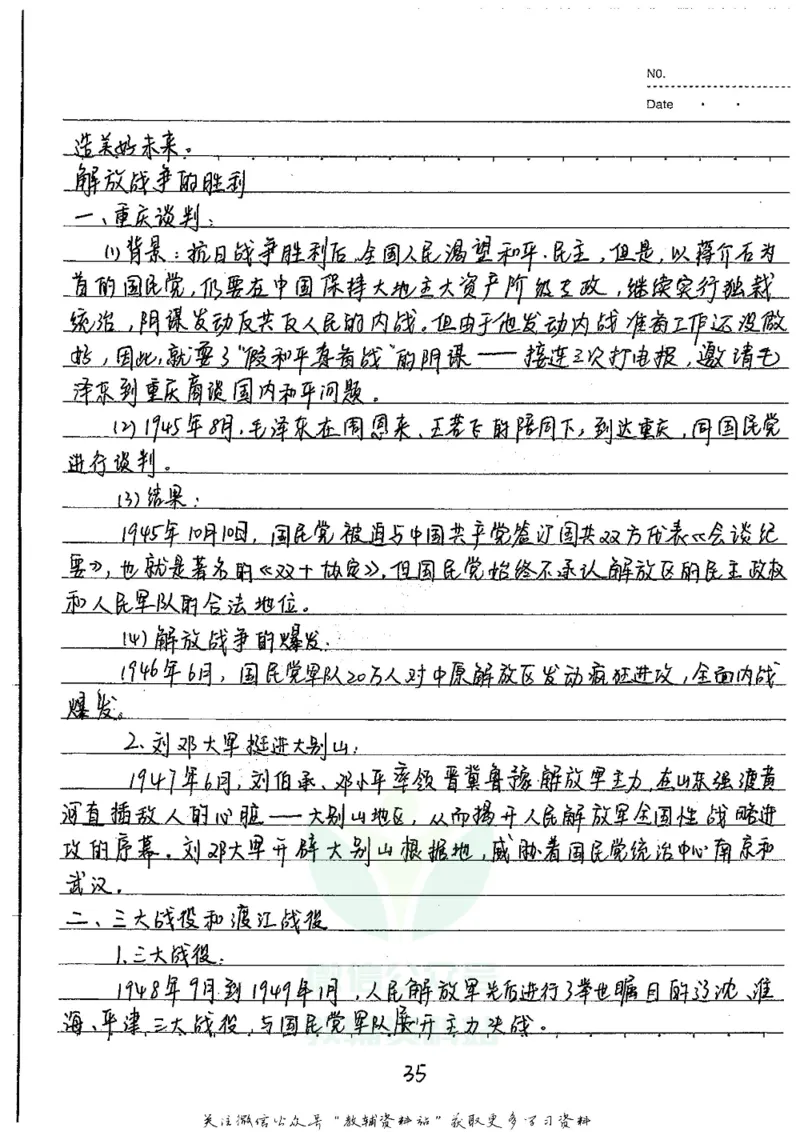 NO.
Date
造美好未来。
解放战争的胜利
一、重庆谈判:
(1)背景:抗日战争胜利后,全国人民渴望和平、民主,但是,以蒋介石为
首的国民党,仍要在中国保持大地主大资产阶级专政,继续实行独裁
统治,阴谋发动反共反人民的内战。但由于他发动内战准备工作还没做
好,因此,就耍了“假和平真备战”的阴谋——接连三次打电报,邀请毛
泽东到重庆商谈国内和平问题。
(2)1945年8月,毛泽东在周恩来、王若飞的陪同下,到达重庆,同国民党
进行谈判。
(3)结果:
1945年10月10日,国民党被迫与中国共产党签订国共双方代表《会谈纪
要》,也就是著名的《双十协定》,但国民党始终不承认解放区的民主政权
和人民军队的合法地位。
(4)解放战争的爆发:
1946年6月,国民党军队20万人对中原解放区发动疯狂进攻,全面内战
爆发。
2.刘邓大军挺进大别山:
1947年6月,刘伯承、邓小平率领晋冀鲁豫解放军主力,在山东强渡黄
河直插敌人的心脏——大别山地区,从而揭开人民解放军全国性战略进
攻的序幕。刘邓大军开辟大别山根据地,威胁着国民党统治中心南京和
武汉。
二、三大战役和渡江战役
1.三大战役:
1948年9月到1949年1月,人民解放军先后进行了举世瞩目的辽沈、淮
海、平津三大战役,与国民党军队展开主力决战。
35
关注微信公众号“教辅资料站”获取更多学习资料